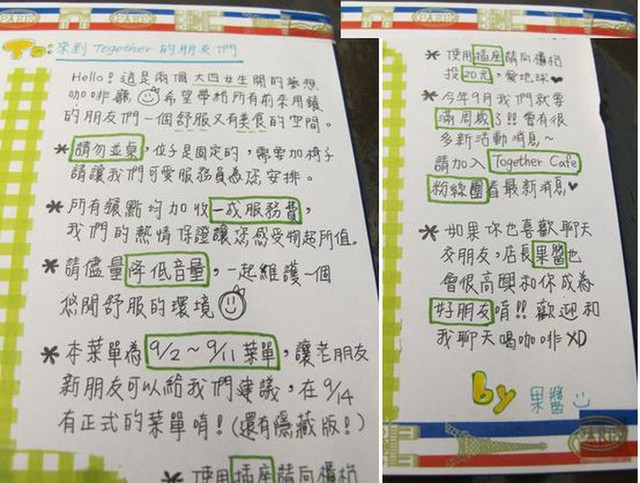 PARIS
To: 來到 Together 的朋友們
Hello! 這是兩個大四女生開的夢想
咖啡廳 希望帶給所有前來用餐
的朋友們一個舒服又有美食的空間。
* 請勿並桌,位子是固定的,需要加椅子
請讓我們可愛服務員為您安排。
* 所有餐點均加收一成服務費,
我們的熱情保證讓您感受物超所值。
* 請儘量降低音量,一起維護一個
悠閒舒服的環境
* 本菜單為 9/2~9/11 菜單,讓老朋友
新朋友可以給我們建議,在9/14
有正式的菜單唷!(還有隱藏版!)
* 使用插座請向櫃檯
PARIS
* 使用插座請向櫃檯
投20元,愛地球♥
* 今年9月我們就要
滿周歲了!!會有很
多新活動消息~
請加入 Together Cafe
粉絲團看最新消息♥
* 如果你也喜歡聊天
交朋友,店長果醬也
會很高興和你成為
好朋友唷!!歡迎和
我聊天喝咖啡XD
by 果醬
PARIS